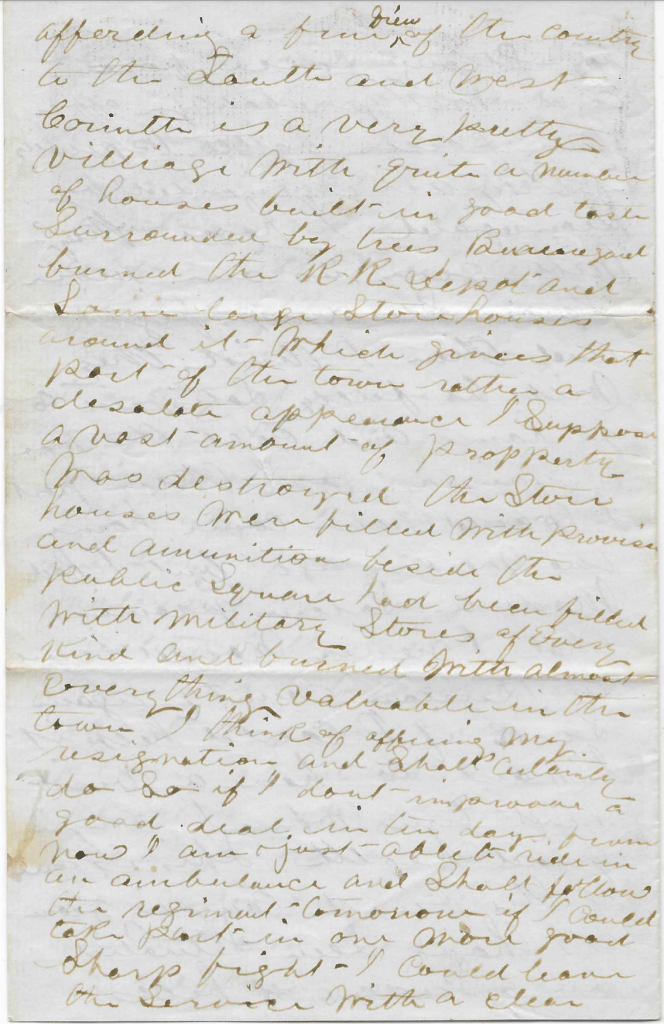 affording a fine view of the country
to the South and West
Corinth is a very pretty
villiage with quite a number
of houses built in good taste
Surrounded by trees Beauregard
burned the R. R. Depot and
Some large Store houses
around it - Which gives that
part of the town rather a
desolate appearance I Suppose
a vast amount of propperty
was destroyed the Store
houses were filled with provisi
and amunition beside the
public Square had been filled
with military Stores of every
kind and burned with almost
everything valuable in the
town I think of offering my
resignation and Shall certainly
do So if I dont improove a
good deal in ten days from
now I am just able to ride in
an ambulance and Shall follow
the regiment tomorrow if I could
take part in one more good
Sharp fight - I could leave
the Service with a clear